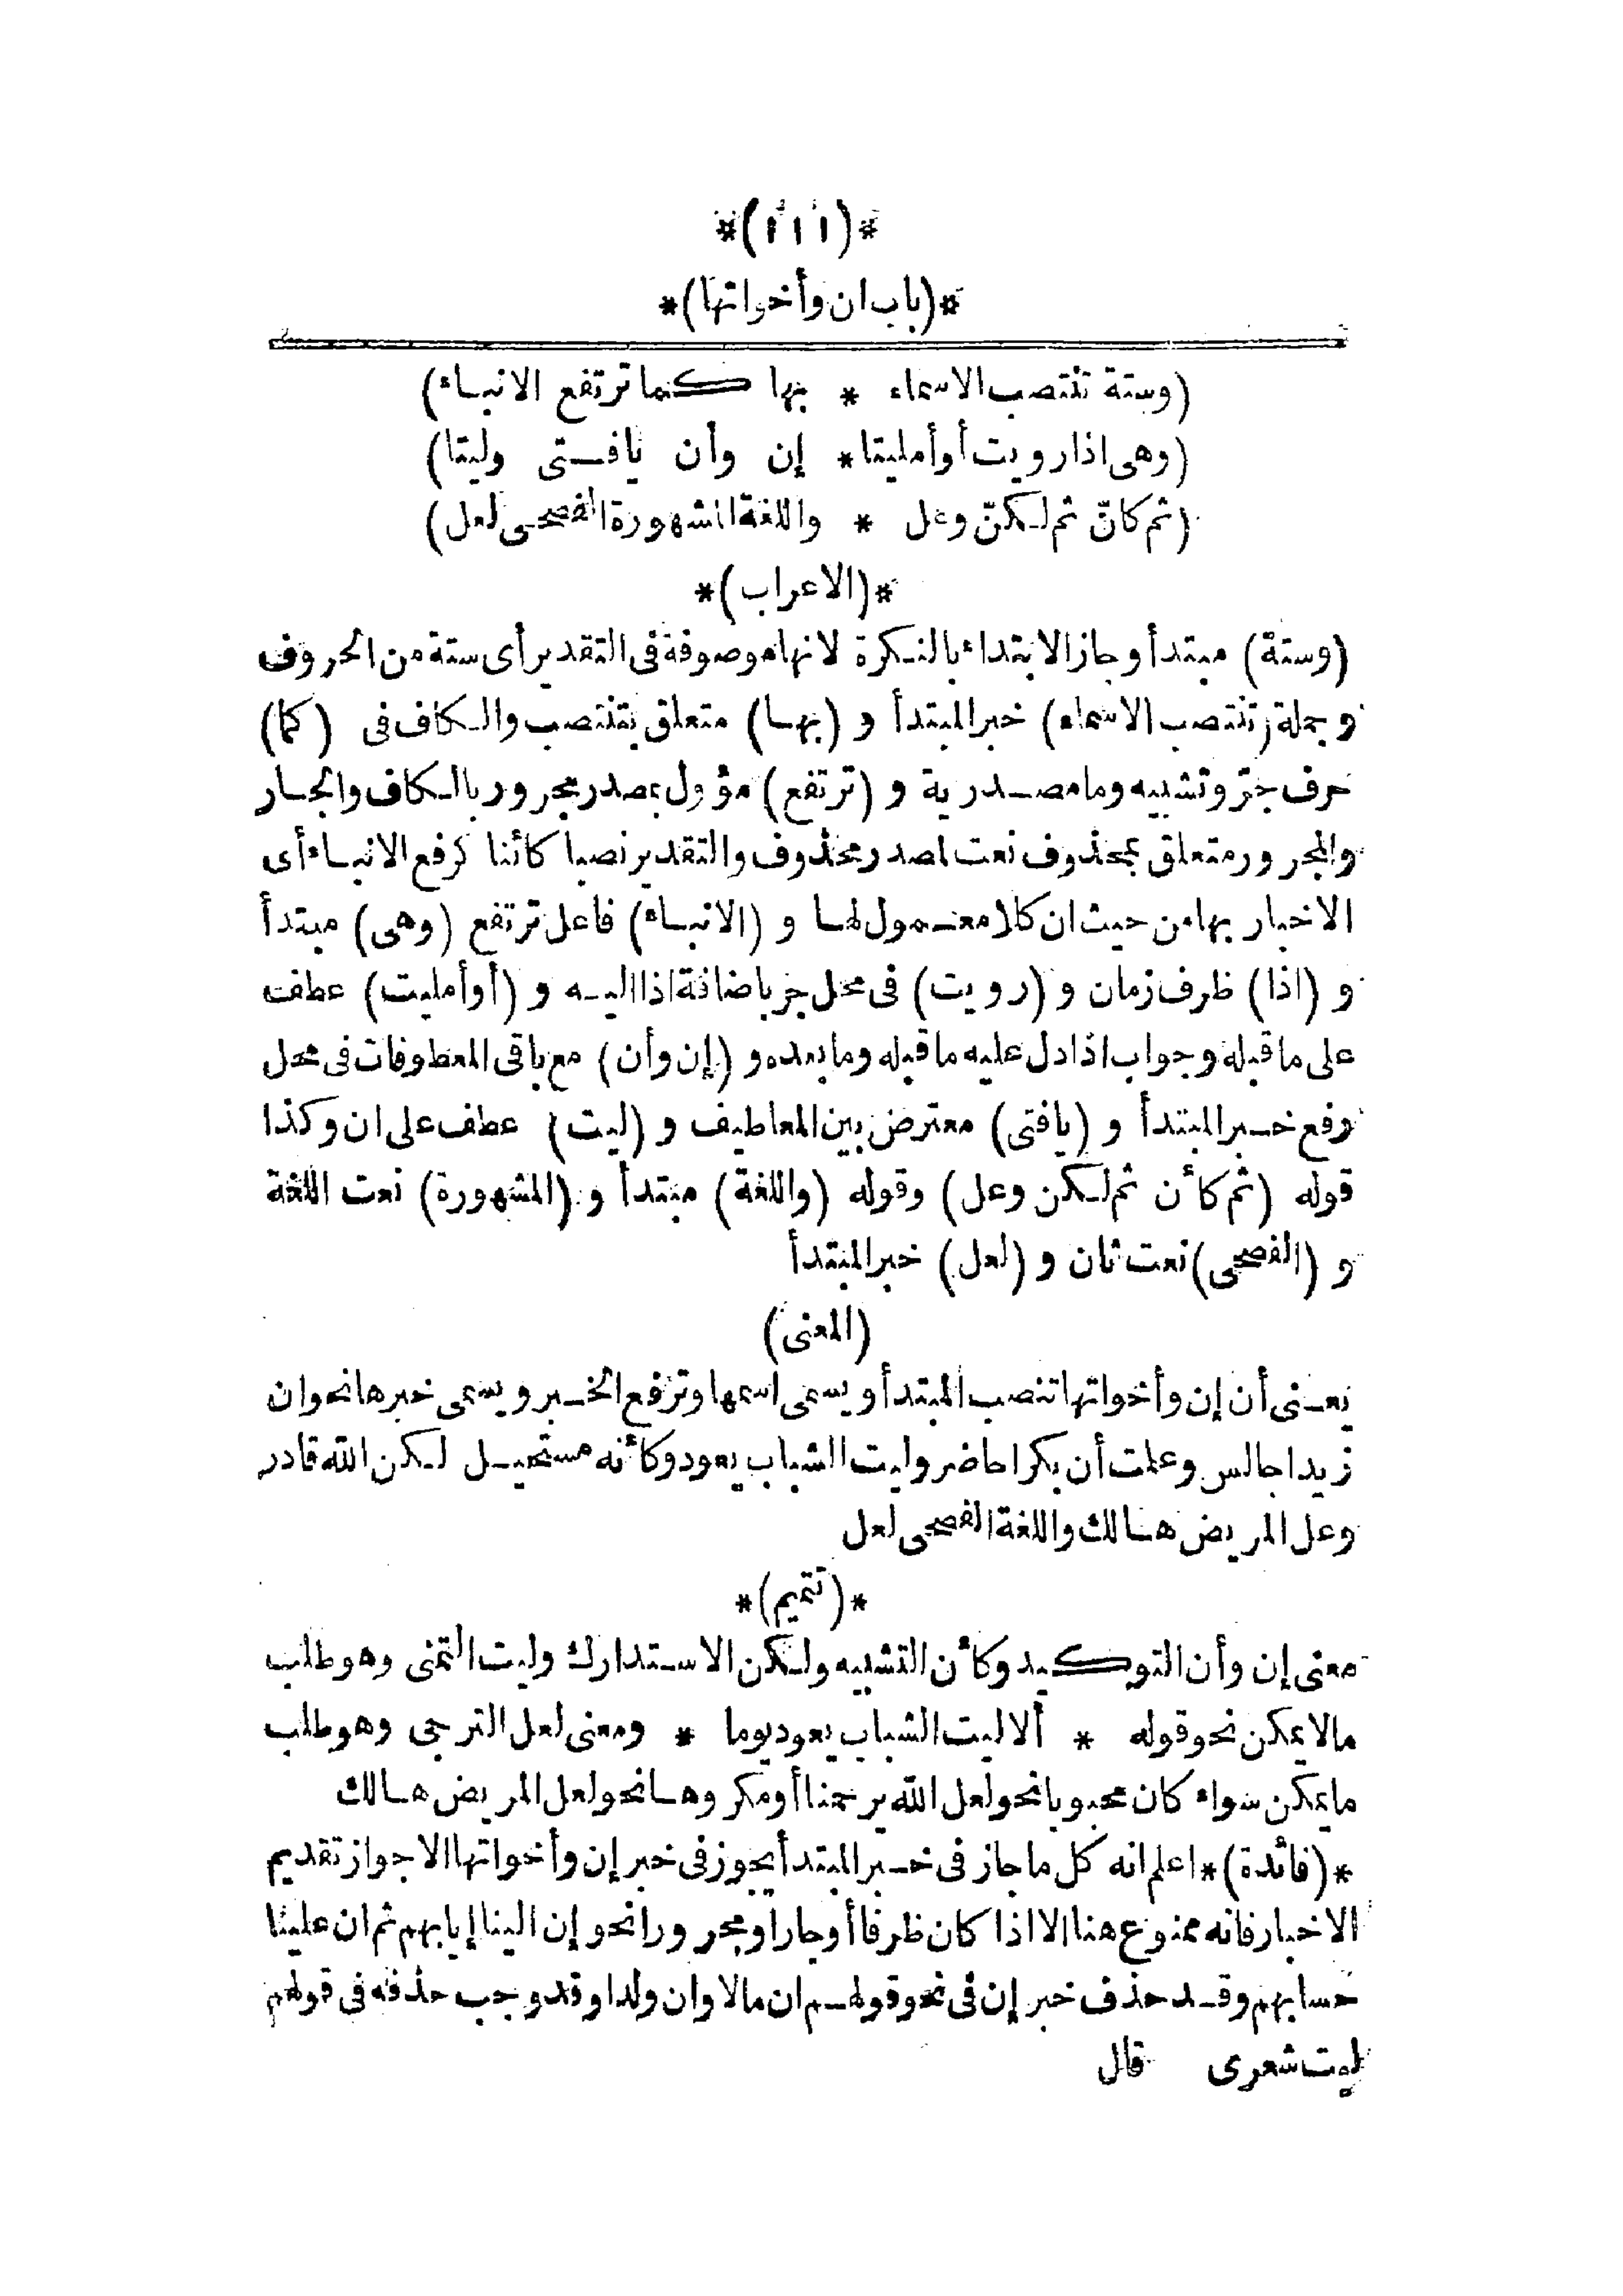 *(١١١)*
*(باب ان وأخواتها)*
(وستة تنتصب الاسماء * بها كما ترتفع الانباء)
(وهى اذا رويت أو أمليتا * إن وأن يافتى وليتا)
(ثم كانّ ثم لكنّ وعل * واللغة المشهورة الفصحى لعل)
*(الاعراب)*
(وستة) مبتدأ وجاز الابتداء بالنكرة لانها موصوفة فى التقدير أى ستة من الحروف
وجملة (تنتصب الاسماء) خبر المبتدأ و (بها) متعلق بتنتصب والكاف فى (كما)
حرف جرّ وتشبيه وما مصدرية و (ترتفع) مؤول بمصدر مجرور بالكاف والجار
والمجرور متعلق بمحذوف نعت لمصدر محذوف والتقدير نصبا كائنا كرفع الانباء أى
الاخبار بها من حيث ان كلا معمول لها و (الانباء) فاعل ترتفع (وهى) مبتدأ
و (اذا) ظرف زمان و (رويت) فى محل جر باضافة اذا اليه و (أو أمليت) عطف
على ما قبله وجواب اذا دل عليه ما قبله وما بعده و (إن وأن) مع باقى المعطوفات فى محل
رفع خبر المبتدأ و (يافتى) معترض بين المعاطيف و (ليت) عطف على ان وكذا
قوله (ثم كأن ثم لكن وعل) وقوله (واللغة) مبتدأ و (المشهورة) نعت اللغة
و (الفصحى) نعت ثان و (لعل) خبر المبتدأ
(المعنى)
يعنى أن إن وأخواتها تنصب المبتدأ ويسمى اسمها وترفع الخبر ويسمى خبرها نحو ان
زيدا جالس وعلمت أن بكرا حاضر وليت الشباب يعود وكأنه مستحيل لكن الله قادر
وعل المريض هالك واللغة الفصحى لعل
*(تتميم)*
معنى إن وأن التوكيد وكأن التشبيه ولكن الاستدارك وليت التمنى وهو طلب
مالا يمكن نحو قوله * ألا ليت الشباب يعود يوما * ومعنى لعل الترجى وهو طلب
ما يمكن سواء كان محبوبا نحو لعل الله يرحمنا أو مكروها نحو لعل المريض هالك
*(فائدة)* اعلم انه كل ما جاز فى خبر المبتدأ يجوز فى خبر إن وأخواتها الا جواز تقديم
الاخبار فانه ممنوع هنا الا اذا كان ظرفا أو جارا ومجرورا نحو إن الينا إيابهم ثم ان علينا
حسابهم وقد حذف خبر إن فى نحو قولهم ان مالا وان ولدا وقد وجب حذفه فى قولهم
ليت شعرى قال